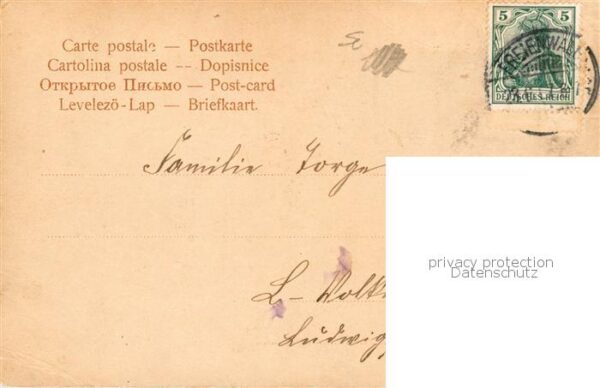 Carte postale — Postkarte
Cartolina postale -- Dopisnice
Открытое Письмо — Post-card
Levelező-Lap — Briefkaart.
5 5
DEUTSCHES REICH
FREIENWAL
Familie Torge
privacy protection
Datenschutz
L-Volk
Ludwig